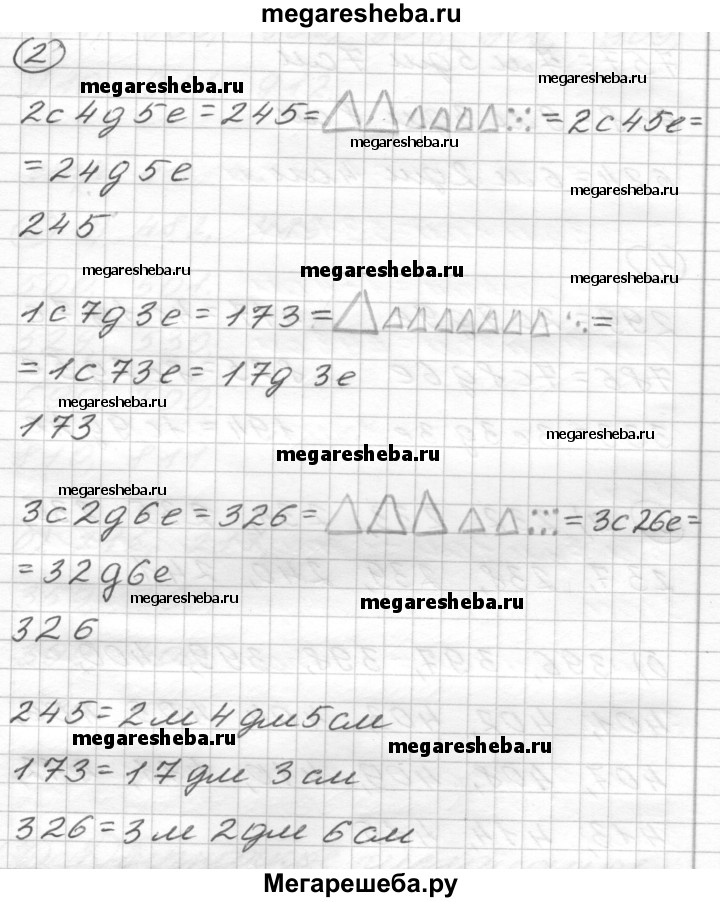 megaresheba.ru
2
megaresheba.ru
megaresheba.ru
2с 4д 5е = 245 = = 2с 45е =
megaresheba.ru
= 24д 5е
megaresheba.ru
245
megaresheba.ru
megaresheba.ru
megaresheba.ru
1с 7д 3е = 173 = =
= 1с 73е = 17д 3е
megaresheba.ru
173
megaresheba.ru
megaresheba.ru
megaresheba.ru
3с 2д 6е = 326 = = 3с 26е =
= 32д 6е
megaresheba.ru
megaresheba.ru
326
245 = 2м 4дм 5см
megaresheba.ru
megaresheba.ru
173 = 17дм 3см
326 = 3м 2дм 6см
Мегарешеба.ру